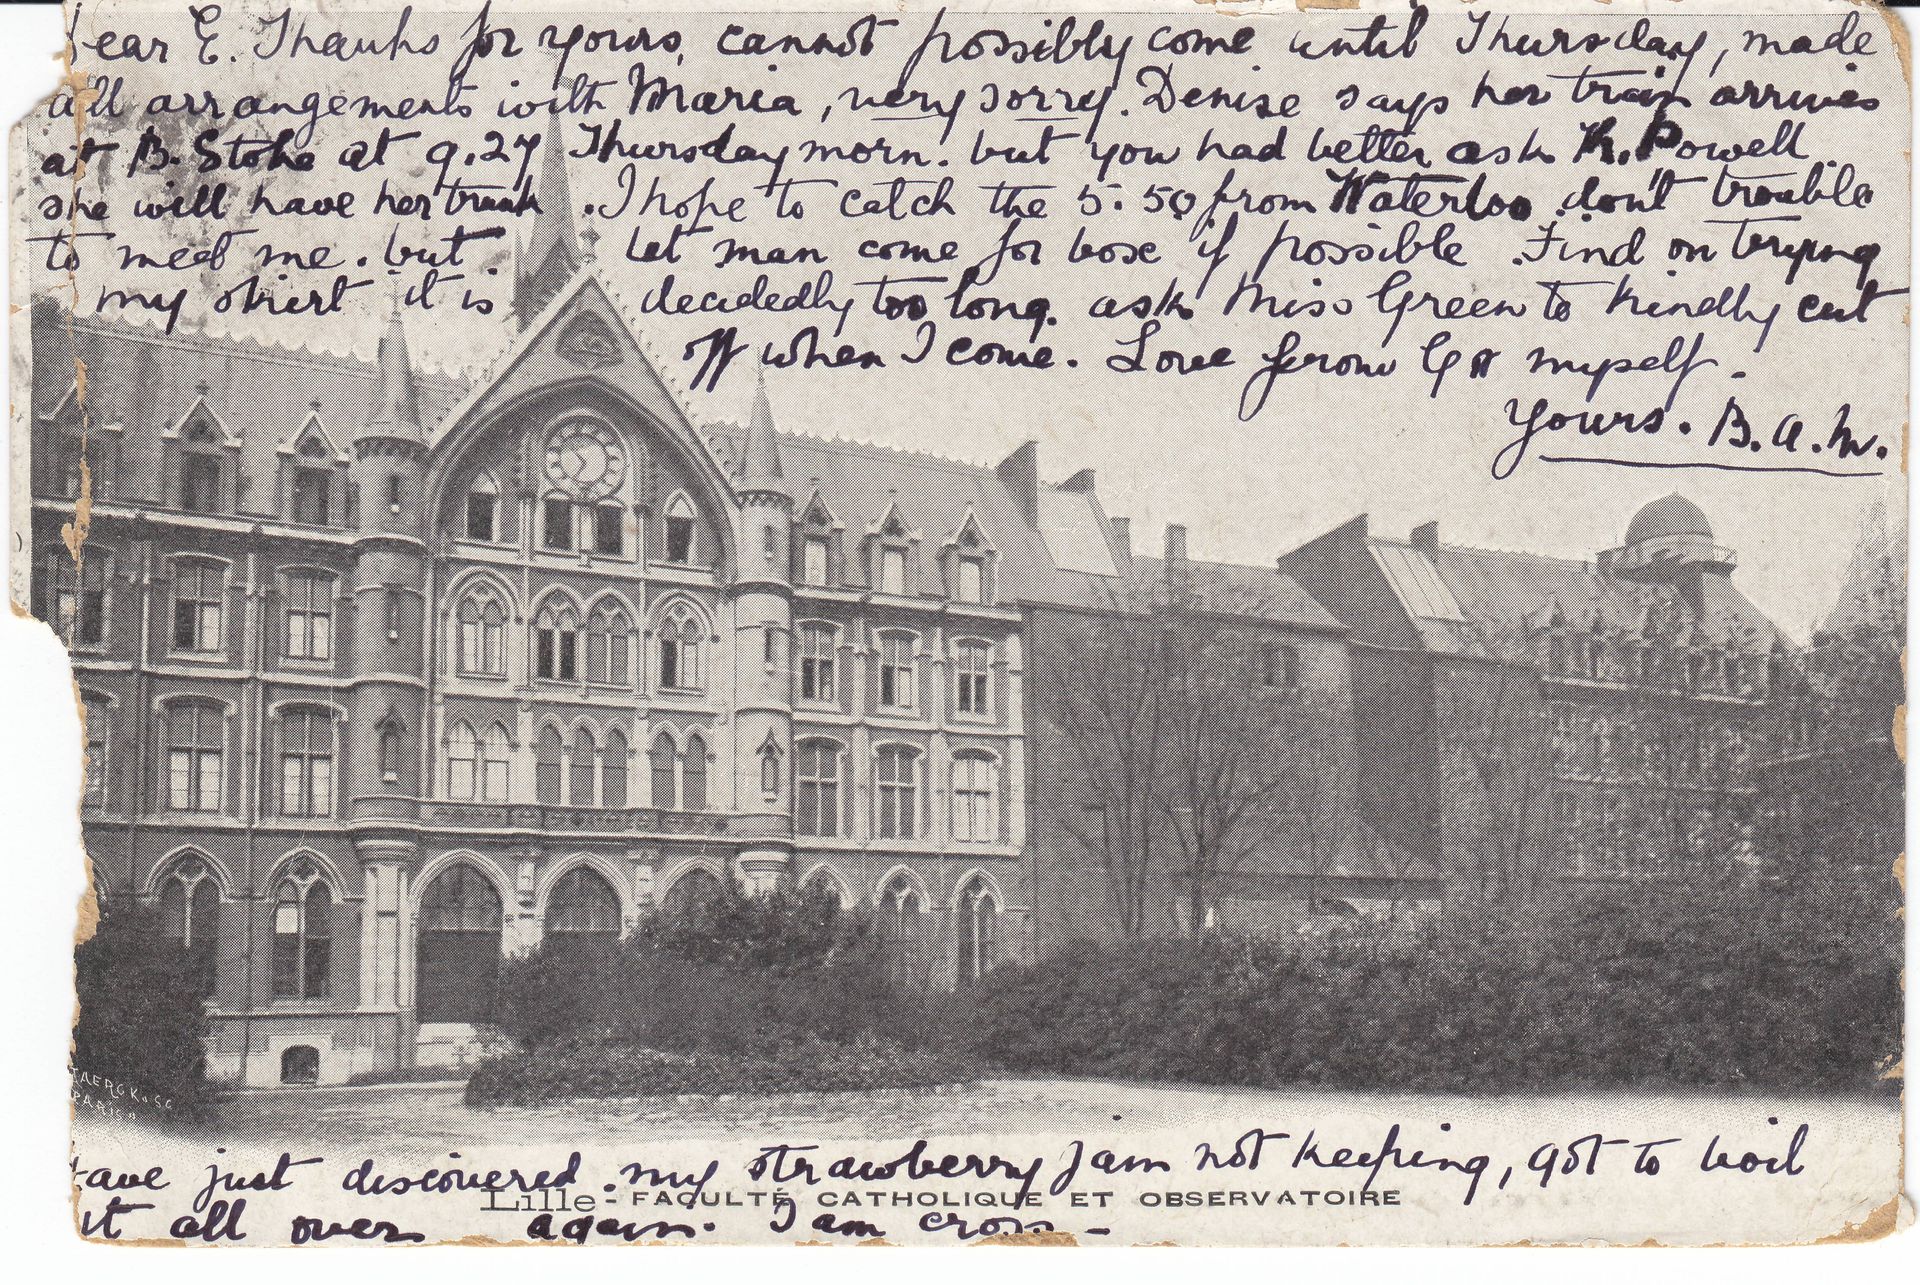 Dear E. Thanks for yours, cannot possibly come until Thursday, made
all arrangements with Maria, very sorry. Denise says her train arrives
at B. Stoke at 9.27 Thursday morn. but you had better ask K. Powell
she will have her trunk. I hope to catch the 5.50 from Waterloo don't trouble
to meet me. but let man come for box if possible. Find on trying
my skirt it is decidedly too long. ask Miss Green to kindly cut
off when I come. Love from G & myself.
Yours. B.A.W.
TAERCK. SC
PARIS
Have just discovered my strawberry jam not keeping, got to boil
Lille - FACULTÉ CATHOLIQUE ET OBSERVATOIRE
it all over again. I am cross -